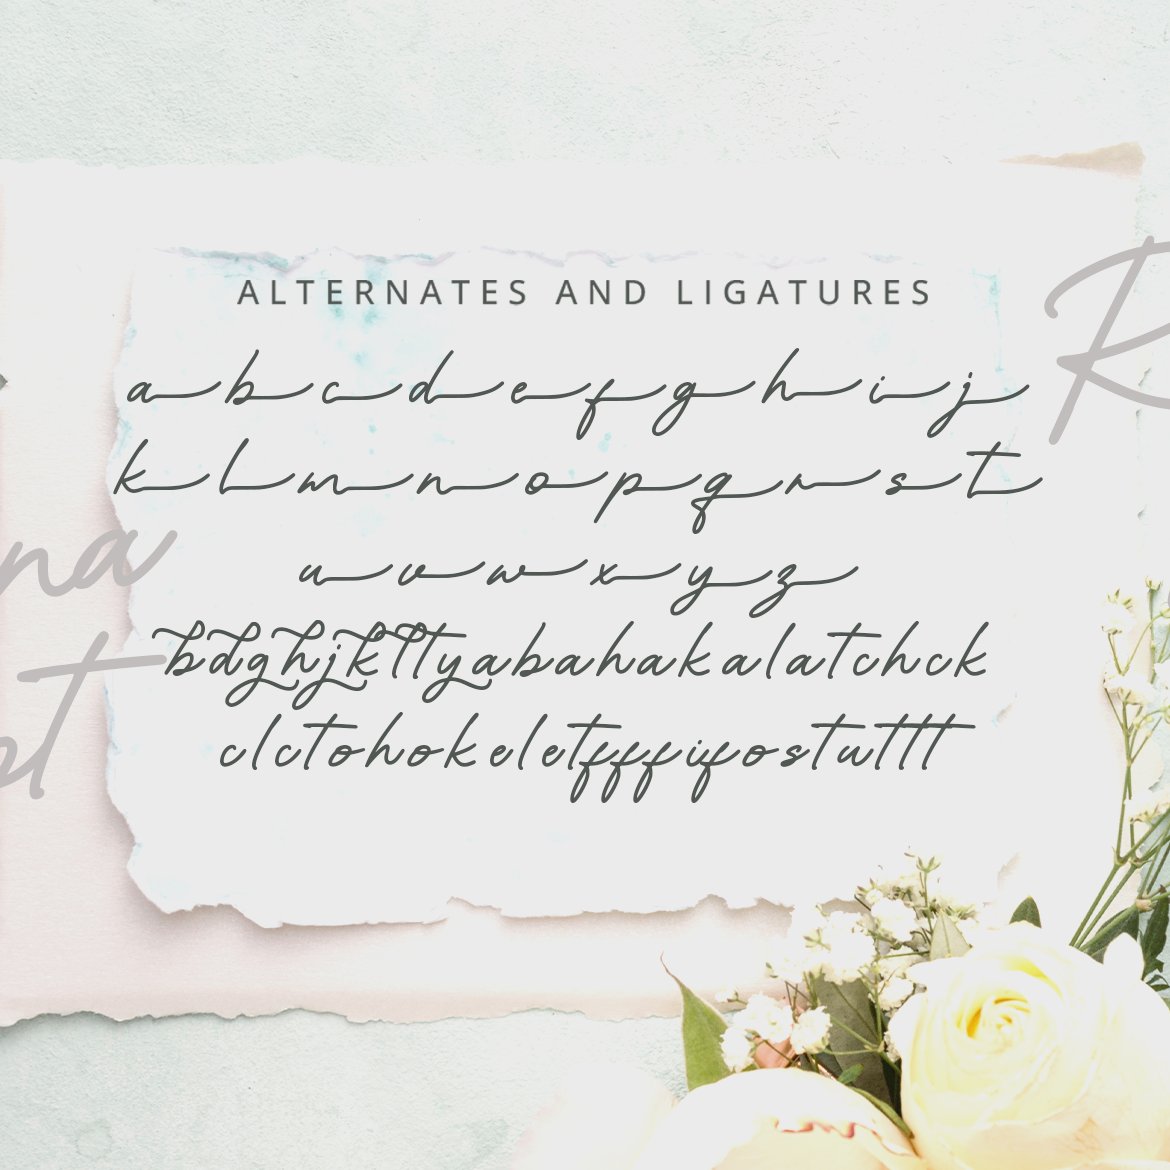 ALTERNATES AND LIGATURES
a b c d e f g h i j
k l m n o p q r s t
u v w x y z
bdghjklltyabahakalatchck
clctohokeletffffiyfostuttt
R
na
pt